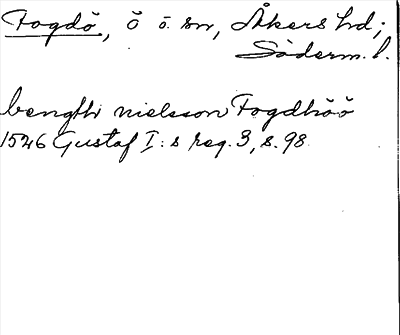 Fogdö, ö o. sn, Åkers hd;
Söderm. l.
bength nielsson Fogdhöö
1526 Gustaf I:s reg. 3, s. 98